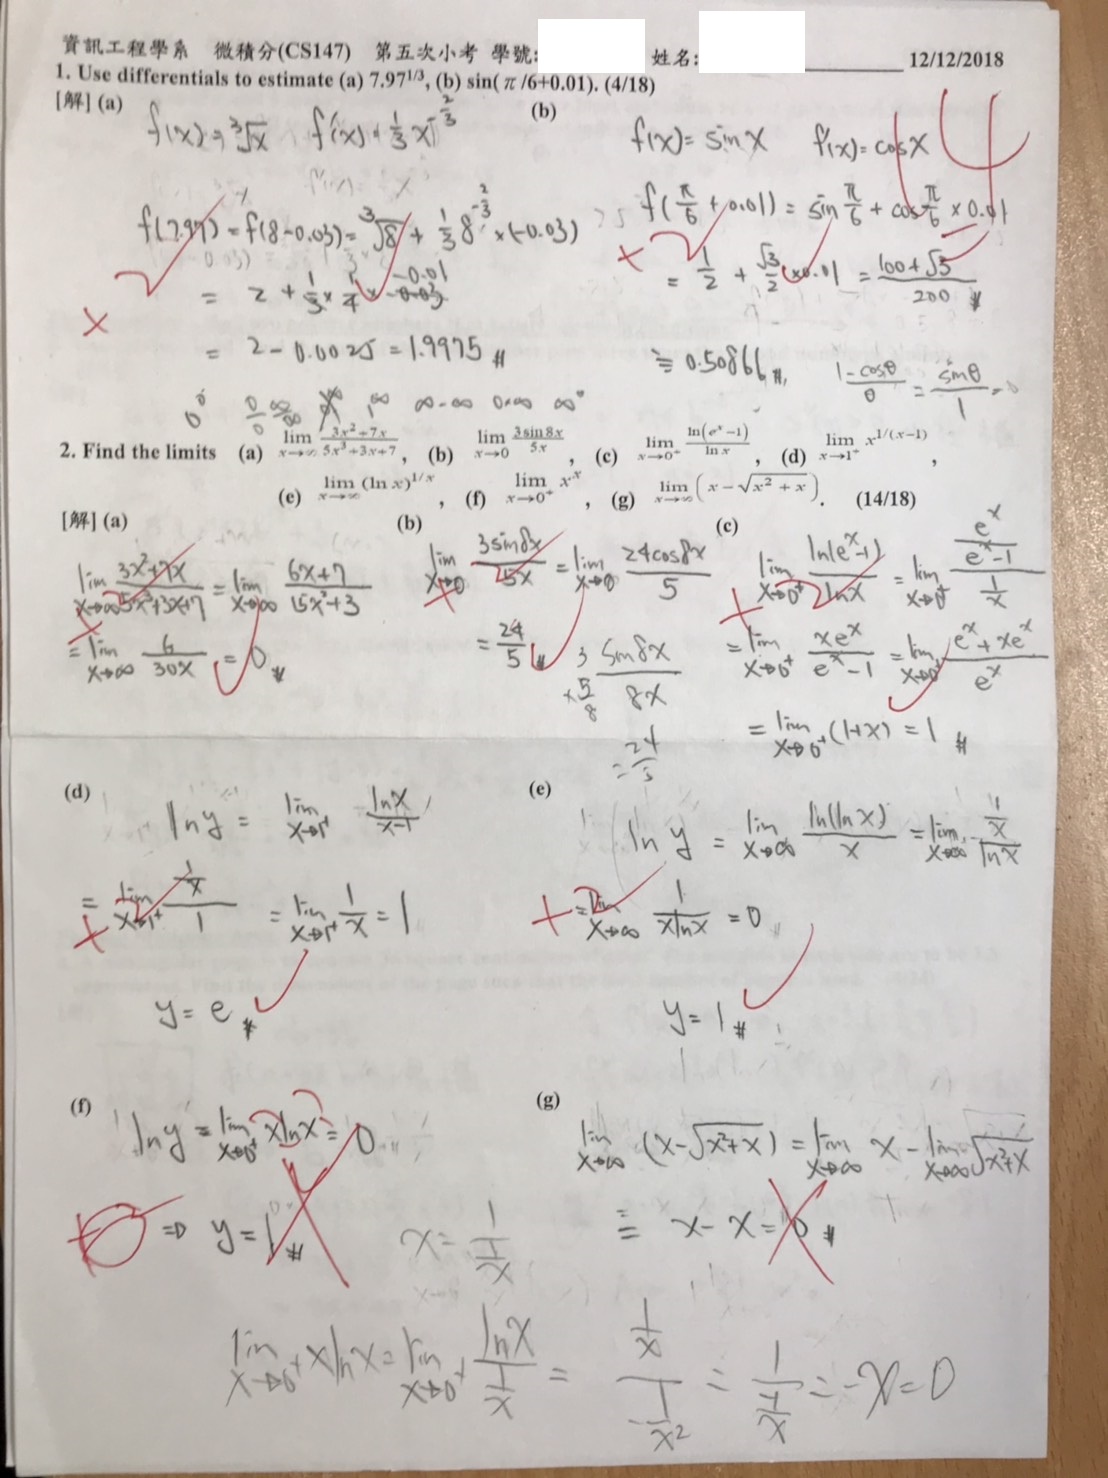 資訊工程學系 微積分(CS147) 第五次小考 學號: 姓名: 12/12/2018
1. Use differentials to estimate (a) 7.97^{1/3}, (b) sin(π/6+0.01). (4/18)
[解] (a)
f(x)=∛x f'(x)=1/3 x^{-2/3}
f(7.97)=f(8-0.03)=∛8 + 1/3 8^{-2/3} ×(-0.03)
= 2 + 1/3 × 1/4 × -0.03 -0.01
= 2 - 0.0025 = 1.9975 #
(b)
f(x)= sin x f'(x)= cos x
f(π/6 + 0.01) = sin π/6 + cos π/6 × 0.01
= 1/2 + √3/2 × 0.01 = (100+√3)/200 #
≒ 0.50866 #
(1-cosθ)/θ = sinθ/1 = 0
0⁰ 0/0 ∞/∞ 1^∞ ∞-∞ 0×∞ ∞⁰
2. Find the limits (a) lim x→∞ (3x²+7x)/(5x³+3x+7), (b) lim x→0 3sin8x/5x, (c) lim x→0⁺ ln(e^x-1)/ln x, (d) lim x→1⁺ x^{1/(x-1)},
(e) lim x→∞ (ln x)^{1/x}, (f) lim x→0⁺ x^x, (g) lim x→∞ (x-√(x²+x)). (14/18)
[解] (a)
lim x→∞ (3x²+7x)/(5x³+3x+7) = lim x→∞ (6x+7)/(15x²+3)
= lim x→∞ 6/30x = 0 #
(b)
lim x→0 3sin8x/5x = lim x→0 24cos8x/5
= 24/5 #
3 sin8x
×5/8 8x
= 24/5
(c)
lim x→0⁺ ln(e^x-1)/ln x = lim x→0⁺ (e^x/(e^x-1))/(1/x)
= lim x→0⁺ xe^x/(e^x-1) = lim x→0⁺ (e^x+xe^x)/e^x
= lim x→0⁺ (1+x) = 1 #
(d)
ln y = lim x→1⁺ ln x/(x-1)
= lim x→1⁺ (1/x)/1 = lim x→1⁺ 1/x = 1
y = e #
(e)
ln y = lim x→∞ ln(ln x)/x = lim x→∞ (1/x)/ln x
= lim x→∞ 1/(x ln x) = 0
y = 1 #
(f)
ln y = lim x→0⁺ x ln x = 0
⇒ y = 1 #
x = 1/(1/x)
lim x→0⁺ x ln x = lim x→0⁺ ln x/(1/x) = (1/x)/(-1/x²) = 1/(-1/x) = -x = 0
(g)
lim x→∞ (x-√(x²+x)) = lim x→∞ x - lim x→∞ √(x²+x)
≡ x - x = 0 #